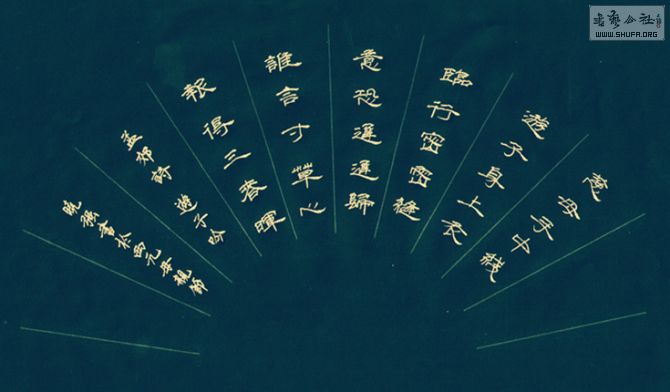 慈母手中线
遊子身上衣
臨行密密縫
意恐遲遲歸
誰言寸草心
報得三春暉
孟郊詩 遊子吟
書於四元母親節
書藝公社
WWW.SHUFA.ORG